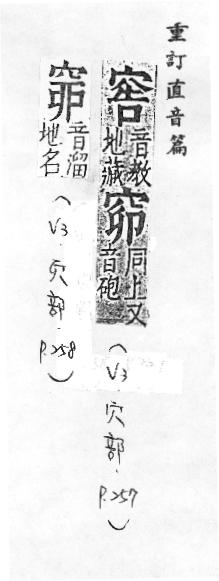 重訂直音篇
窖音教地藏窌同上又音砲(V3.穴部.P.257)
音溜地名(V3.穴部.P.258)